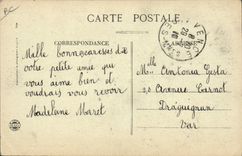 BC
CARTE POSTALE
CORRESPONDANCE
VENCE
Mille bonnes caresses de
votre petite amie qui
vous aime bien et
voudrais vous revoir
Madeleine Maret
Mlle Antonia Gista
25 Avenue Carnot
Draguignan
Var